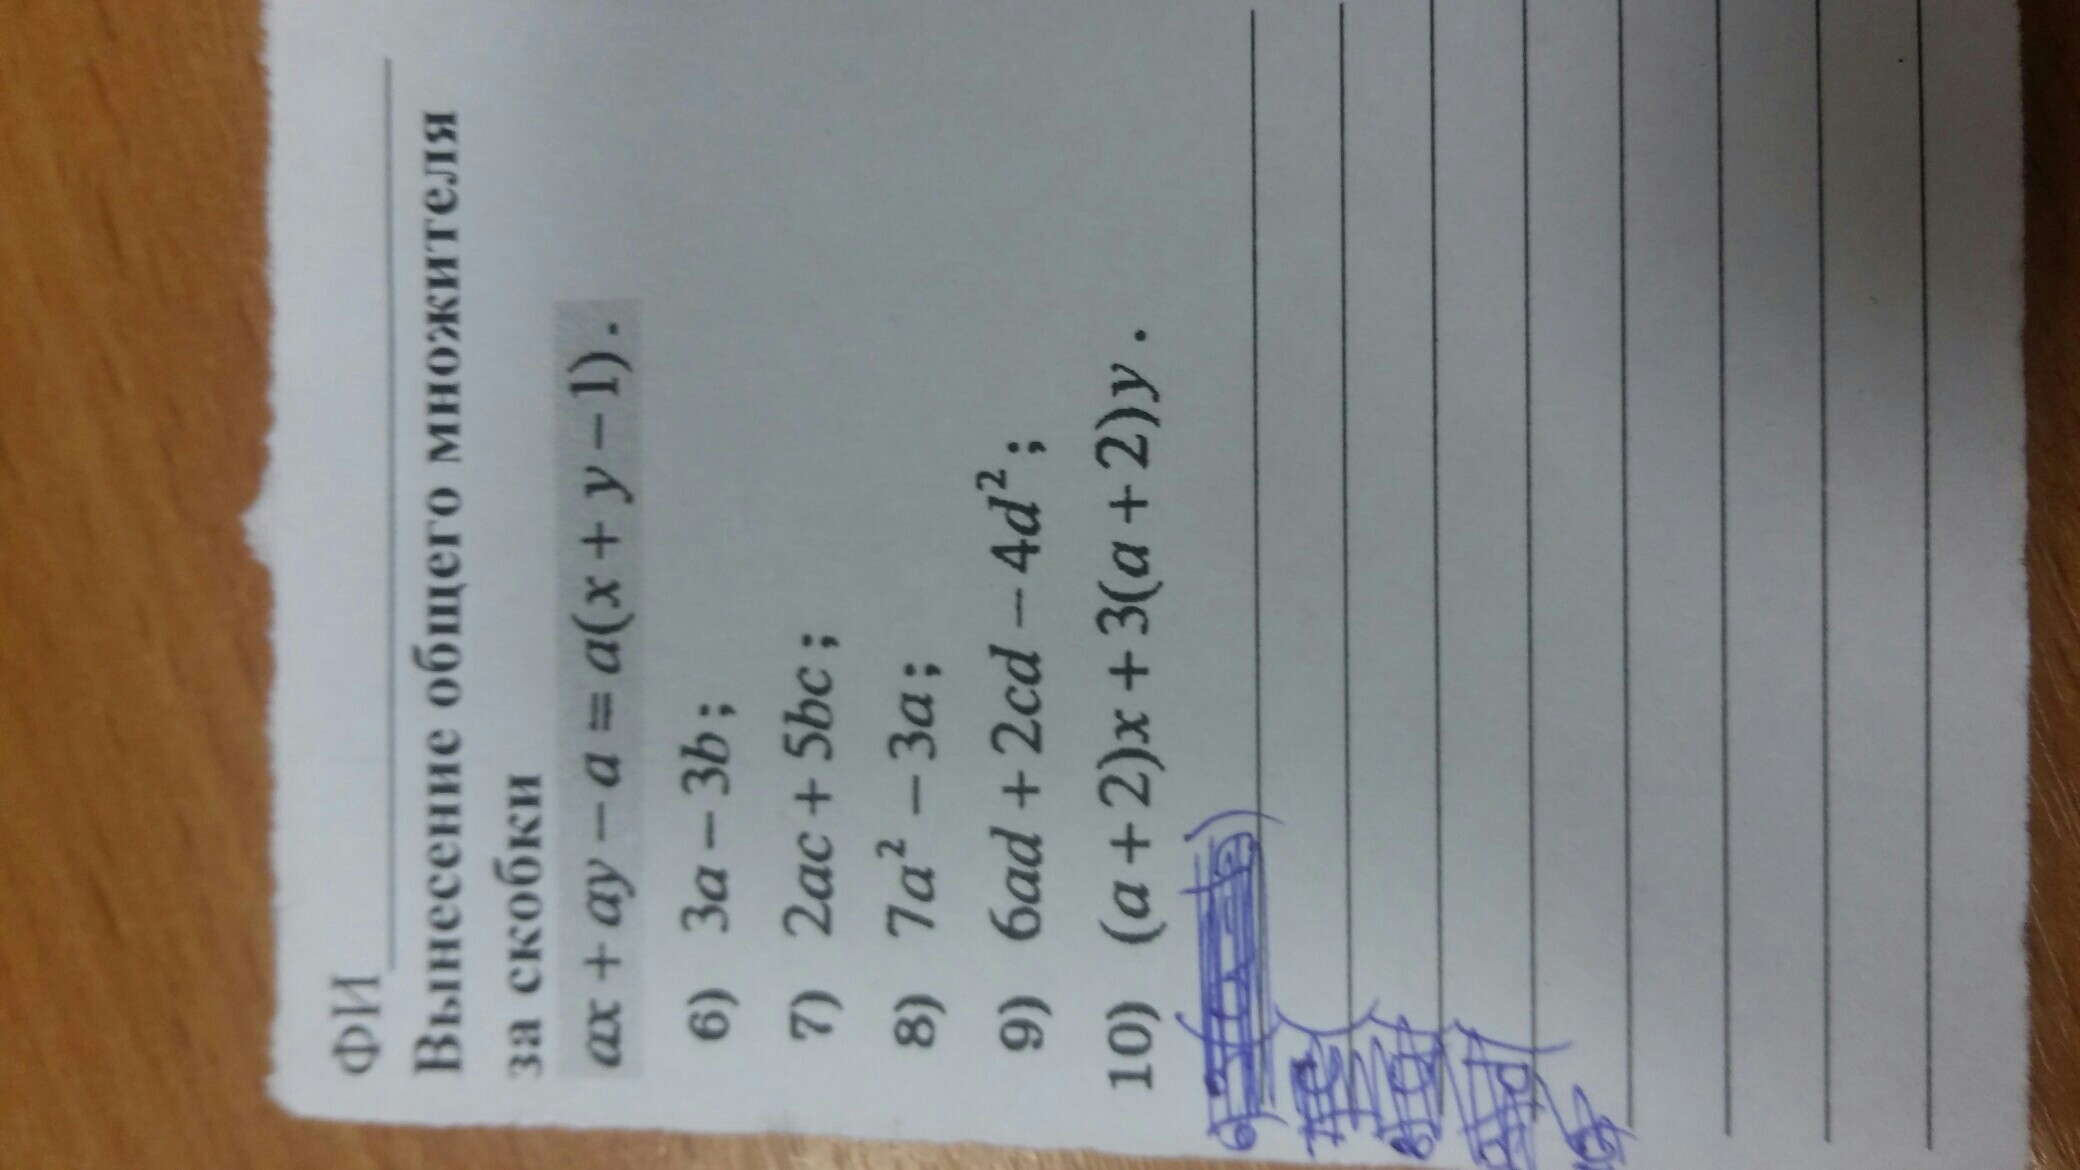 ФИ
Вынесение общего множителя
за скобки
ax + ay − a = a(x + y − 1).
6) 3a − 3b;
7) 2ac + 5bc;
8) 7a² − 3a;
9) 6ad + 2cd − 4d²;
10) (a + 2)x + 3(a + 2)y.